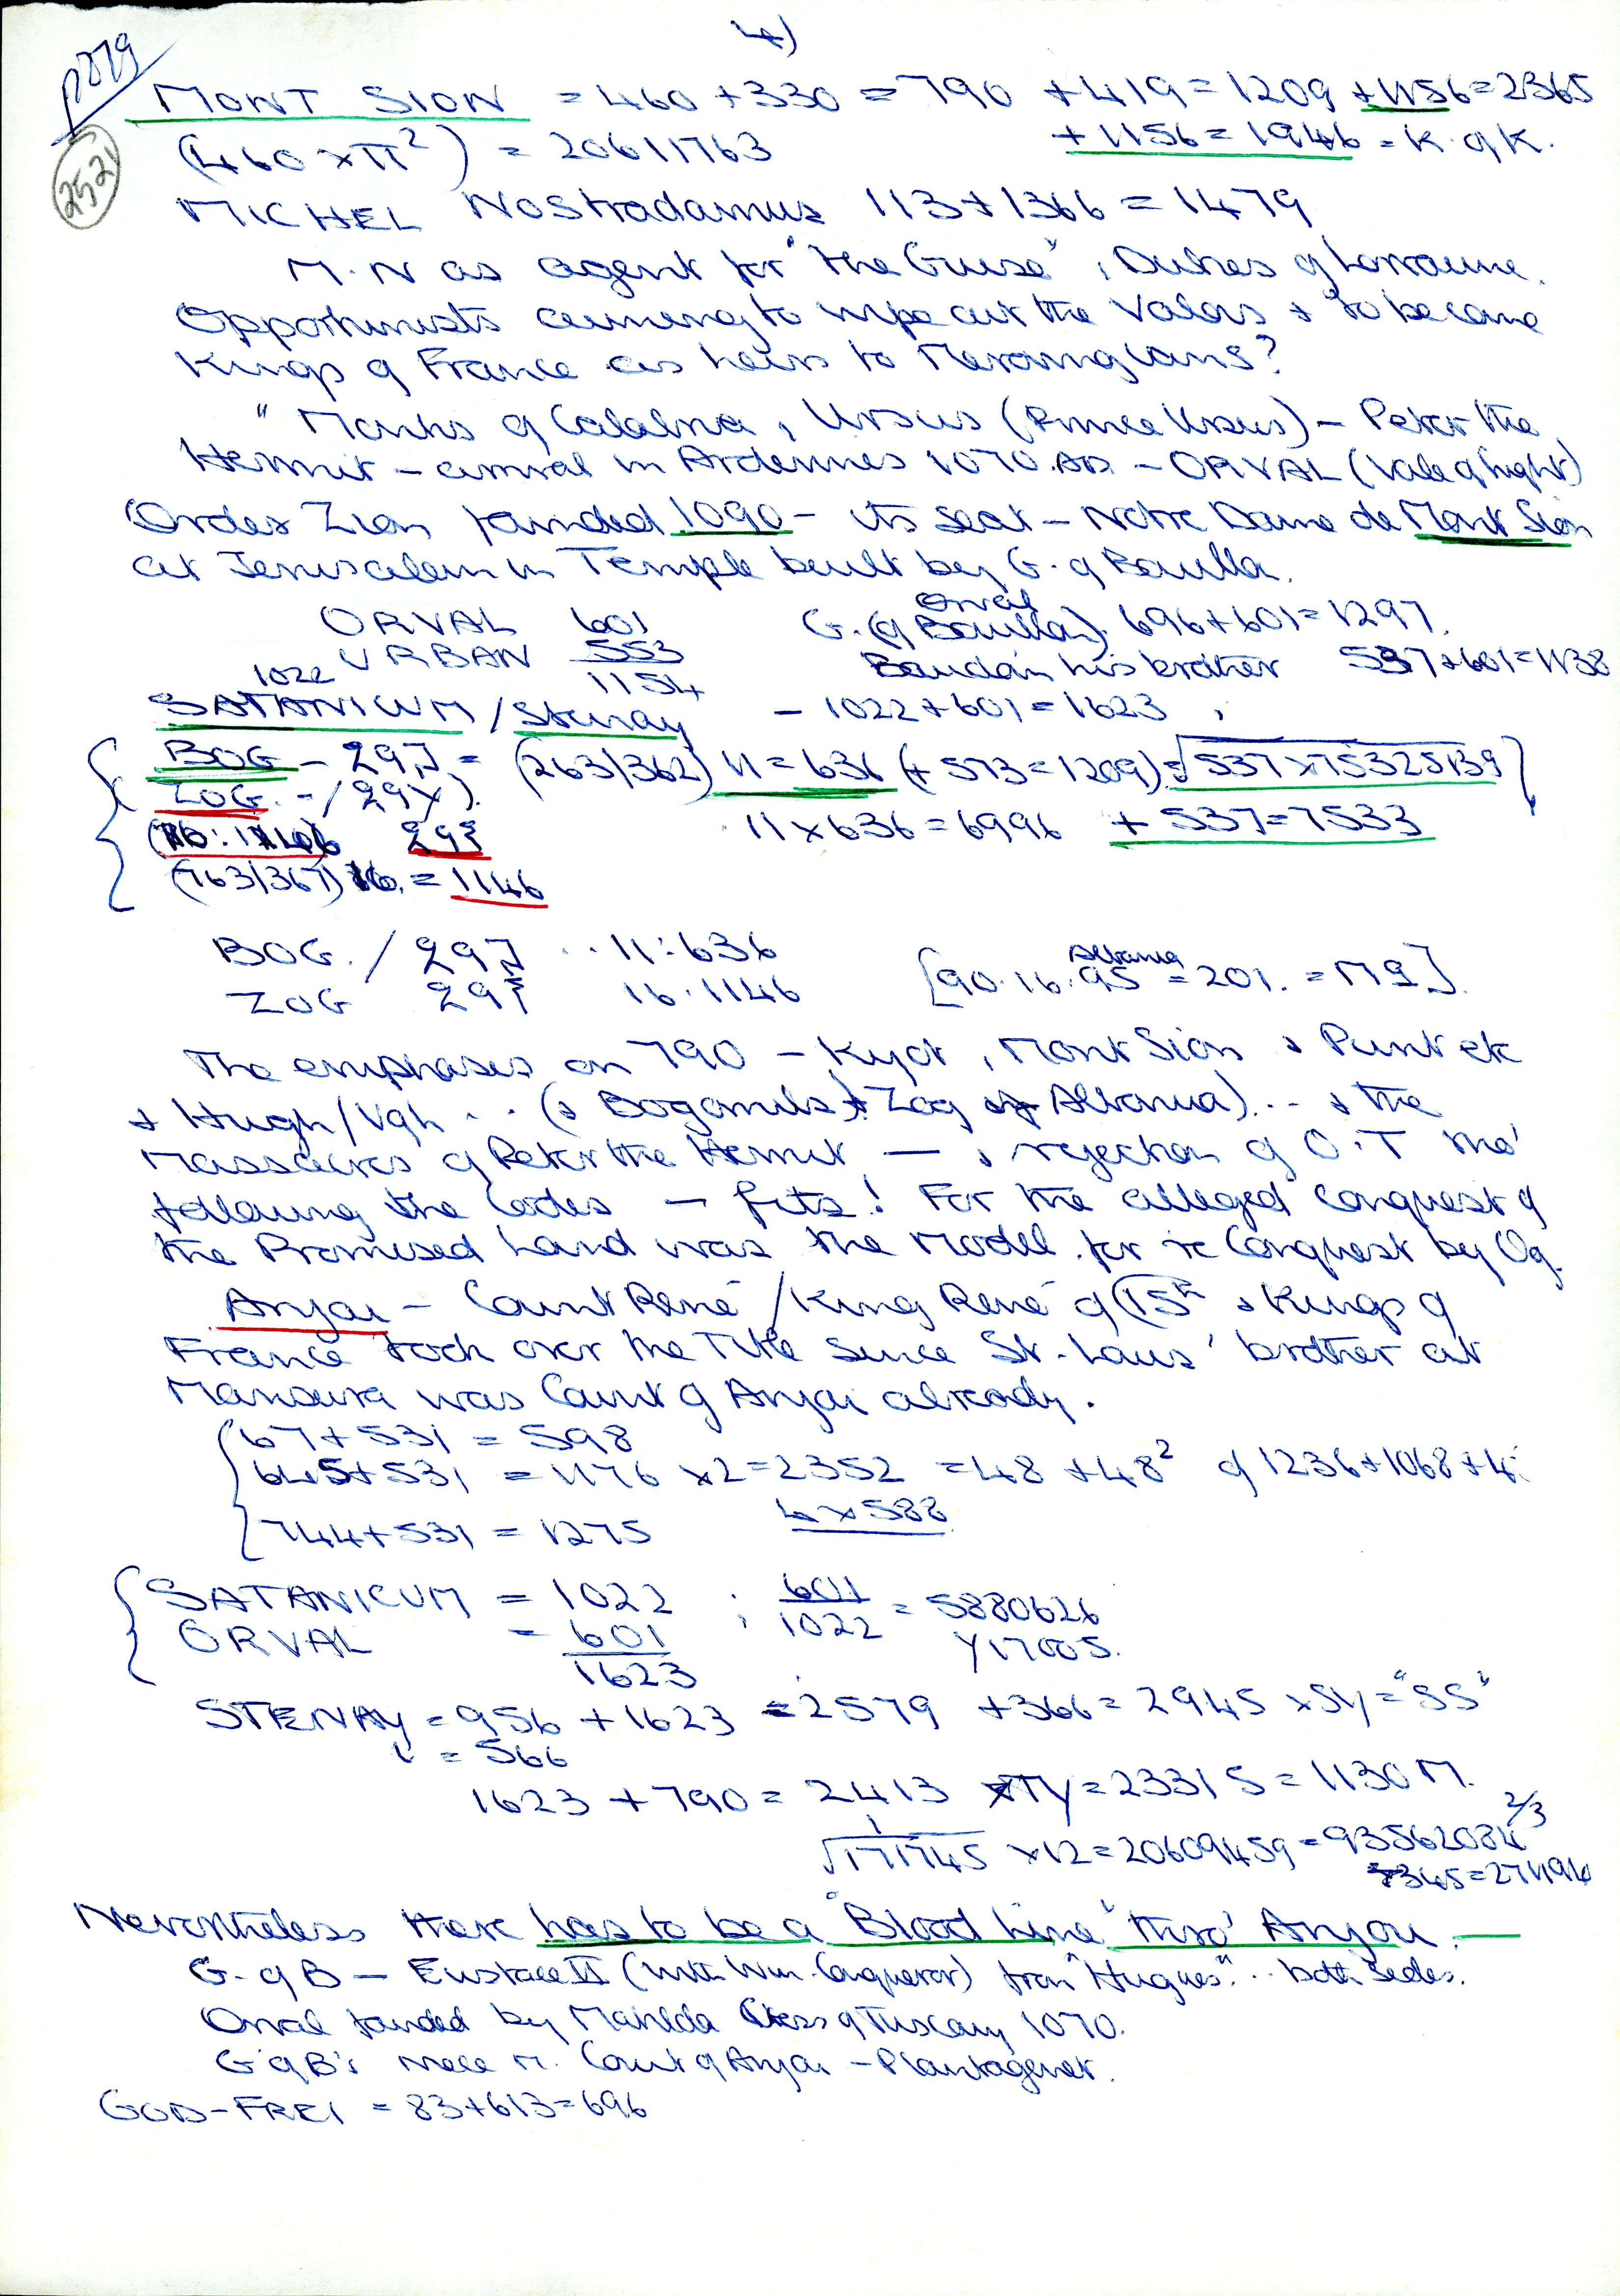 4)
p079
2521
MONT SION = 460 + 330 = 790 + 419 = 1209 + 1156 = 2365
(460 x π²) = 20611763 + 1156 = 1946 = K. of K.
MICHEL Nostradamus 113 + 1366 = 1479
M. N as agent for "the Guise", Dukes of Lorraine.
Opportunists aiming to wipe out the Valois + to become
Kings of France as heirs to Merovingians?
" Monks of Calabria, Ursus (Prince Ursus) - Peter the
Hermit - arrival in Ardennes 1070. AD. - ORVAL (Vale of Light)
Order Zion founded 1090 - its seat - Notre Dame de Mont Sion
at Jerusalem in Temple built by G. of Bouillon.
ORVAL 601 G. (of Bouillon) Orval 696 + 601 = 1297.
URBAN 553 his brother 537 + 601 = 1138
1154
1022
SATANICUM / Stenay - 1022 + 601 = 1623
BOG - (263/362) 11 = 636 (+ 573 = 1209) = √537 x 75325139
ZOG. 11 x 636 = 6996 + 537 = 7533
(763/367) 16. = 1146
BOG. / .. 11:636
ZOG 16.1146 [90.16.95 Albania = 201. = ]
The emphases on 790 - Kyot, Mont Sion & Punt etc
+ Hugh/Vgh .. (& Bogomils) + Zog of Albania) ... & the
Massacres of Peter the Hermit — & rejection of O.T tho'
following the Codes - fits! For the alleged Conquest of
the Promised Land was the Model for re Conquest by Og.
Anjou - Count René / King René of (15th & Kings of
France took over the Title since St. Louis' brother at
Mansura was Count of Anjou already.
67 + 531 = 598
645 + 531 = 1176 x 2 = 2352 = 48 + 48² of 1236 + 1068 + 4
4 x 588
744 + 531 = 1275
SATANICUM = 1022 ; 601/1022 = 5880626
ORVAL = 601 Y17005.
1623
STENAY = 956 + 1623 = 2579 + 366 = 2945 x SY = "SS"
i = 566
1623 + 790 = 2413 x TTY = 2331 S = 1130 M.
√171745 x 12 = 20609459 = 93562084 2/3
345 = 271194
Nevertheless there has to be a "Blood Line" thro' Anjou. —
G. of B - Eustace II (with Wm. Conqueror) from "Hugues" .. both sides.
Orval founded by Matilda Ctess of Tuscany 1070.
G of B's niece m. Count of Anjou - Plantagenet.
GOD-FREI = 83 + 613 = 696